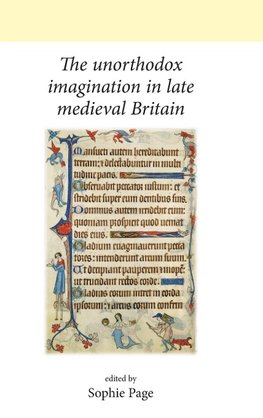 The unorthodox
imagination in late
medieval Britain
Mansueti autem hereditabunt
terram: & delectabuntur in multi
tudine pacis.
Obseruabit peccator iustum: et
stridebit super eum dentibus suis.
Dominus autem irridebit eum:
quoniam prospicit quod ueniat
dies eius.
Gladium euaginauerunt pecca
tores: intenderunt arcum suum.
Ut decipiant pauperem & inopē:
ut trucident rectos corde.
Gladius eorum intret in corda
ipsorum: & arcus eorum confrin
edited by
Sophie Page